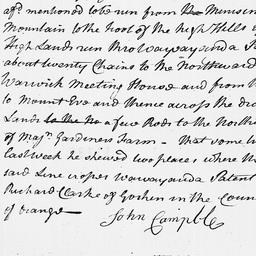 afd. mentioned to be run from the Menisin
Mountain to the foot of the high Hills
High Lands run thro Waywayanda
about twenty Chains to the Northward
Warwick Meeting House and from
to Mount Eve and thence across the
Lands to the no a few Rods to the North
of Majr. Gardiners Farm - that some
Last Week he shewed two places where th
said Line crosses Wawayanda Patent
Richard Clarke of Goshen in the Coun
of Orange
John Campble